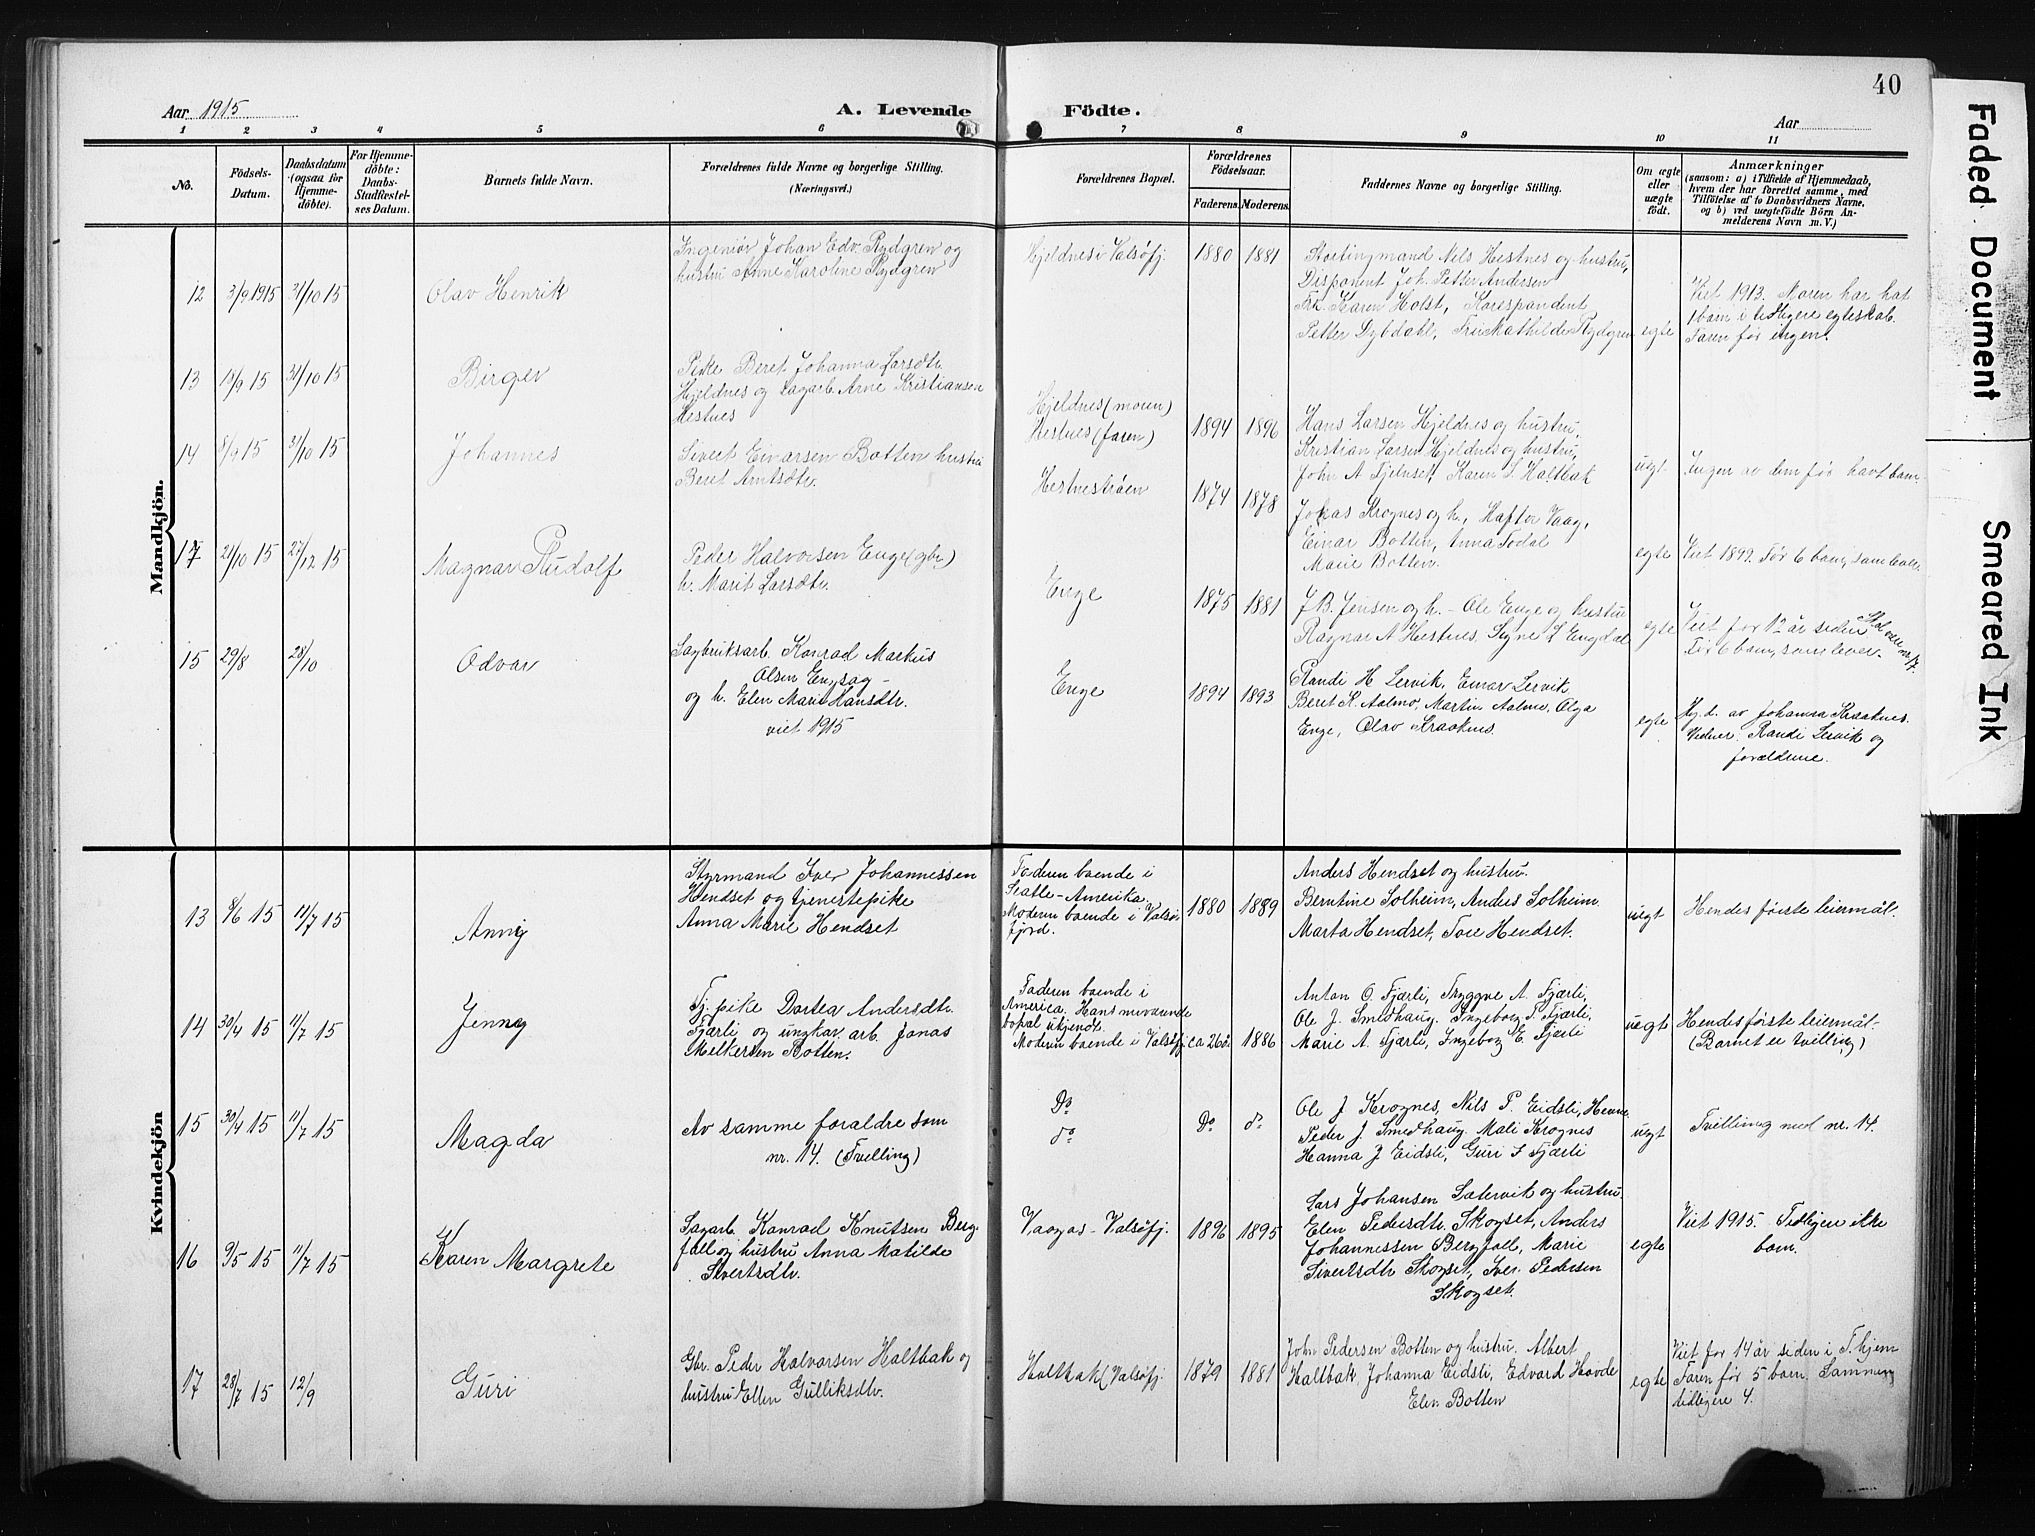 40
Aar 1915
A. Levende
Födte.
Aar
1 2 3 4 5 6 7 8 9 10 11
No.
Födsels-
Datum.
Daabsdatum
(ogsaa for
Hjemme-
döbte).
For Hjemme-
döbte:
Daabs-
Stadfæstel-
ses Datum.
Barnets fulde Navn.
Forældrenes fulde Navne og borgerlige Stilling.
(Næringsvei.)
Forældrenes Bopæl.
Forældrenes
Födselsaar.
Faderens. Moderens.
Faddernes Navne og borgerlige Stilling.
Om ægte
eller
uægte
født.
Anmærkninger
(saasom: a) i Tilfælde af Hjemmedaab,
hvem der har forrettet samme, med
Tilföielse af to Daabsvidners Navne,
og b) ved uegtefödte Börn An-
melderens Navn m. V.)
Mandkjön.
12 3/9 1915 31/10 15
Olav Henrik
Ingeniör Johan Edv. Rydgren og
hustru Anne Karoline Rydgren
Hjeldnes i Valsøfj.
1880 1881
Stortingmand Nils Hestnes og hustru,
Disponent Joh. Petter Andersen
Frk. Karen Holst, Korespandent
Petter Dybdahl, Fru Mathilde Rydgren
egte
Viet 1913. Moren har hat
1 barn i tidligere egteskab.
Faren før ingen.
13 15/9 15 31/10 15
Birger
Pike Beret Johanna Larsdtr.
Hjeldnes og Sagarb. Arne Kristiansen
Hestnes
Hjeldnes (moren)
Hestnes (faren)
1894 1896
Hans Larsen Hjeldnes og hustru,
Kristian Larsen Hjeldnes og hustru,
John A Fjelnset, Karen L Haltbak
ugt
Ingen av dem før havt barn
14 8/9 15 31/10 15
Johannes
Sivert Einarsen Botten hustru
Beret Arntsdtr.
Hestnestrøen
1874 1878
Johas Krognes og h., Haftor Vaag,
Einar Botten, Anna Todal
Marie Botten.
egte
Viet 1899. Før 6 barn, som lever.
17 21/10 15 27/12 15
Magnar Rudolf
Peder Halvorsen Enge (gbr)
h. Marit Larsdtr.
Enge
1875 1881
J B. Jensen og h. - Ole Enge og hustru
Ragnar A Hestnes. Signe L Engdal
egte
Viet for 12 år siden
Før 6 barn, som lever.
Skal være nr. 17.
15 29/8 28/10
Odvar
Sagbruksarb. Konrad Markus
Olsen Engsag -
og h. Elen Marie Hansdtr.
viet 1915
Enge
1894 1893
Randi H Lervik, Einar Lervik
Beret K. Aalmo, Martin Aalmo, Olga
Enge, Olav Kraaknes.
egte
Hj.d. av Johanna Kraaknes.
Vidner: Randi Lervik og
forældrene.
Kvindekjön
13 8/6 15 11/7 15
Anny
Styrmand Iver Johannissen
Hendset og tjenestepike
Anna Marie Hendset
Faderen boende i
Seatle-Amerika.
Moderen boende i Valsø-
fjord.
1880 1889
Anders Hendset og hustru.
Berntine Solheim, Anders Solheim.
Marta Hendset, Tore Hendset.
uegt
Hendes første leiermål.
14 30/4 15 11/7 15
Jenny
Tj. pike Dortea Andersdtr.
Fjærli og ungkar arb. Jonas
Melkersen Botten.
Faderen boende i
America, Hans nuværende
bopæl ukjendt.
Moderen boende i Valsøfj.
ca 26 å. 1886
Anton O. Fjærli, Tryggve A. Fjærli,
Ole J. Smedhaug, Ingeborg P. Fjærli,
Marie A. Fjærli, Ingeborg E. Fjærli
uegt
Hendes første leiermål-
(Barnet er tvilling)
15 30/4 15 11/7 15
Magda
Av samme foraldre som
nr. 14. (Tvelling)
Do
do
Do do
Ole J Krognes, Nils P. Eidsli, Henne
Peder J. Smedhaug. Mali Krognes
Hanna J Eidsli, Guri I Fjærli
uegt
Tvilling med nr. 14.
16 9/5 15 11/7 15
Karen Margrete
Sagarb. Konrad Knutsen Berg-
fall og hustru Anna Matilde
Sivertsdtr.
Vaagos - Valsøfj.
1896 1895
Lars Johansen Sætervik og hustru.
Elen Pedersdtr Skogset, Anders
Johannessen Bergfall, Marie
Sivertsdtr Skogset, Iver Pedersen
Skogset.
egte
Viet 1915. Tidligere ikke
barn.
17 28/7 15 12/9
Guri
Gbr. Peder Halvorsen Haltbak og
hustru Ellen Gulliksdtr.
Haltbak (Valsøfj.
1879 1881
John Pedersen Botten og hustru. Albert
Haltbak Johanna Eidsli, Edvard Hovde
Elen Botten
egte
Viet for 14 år siden i T.hjem
Faren før 5 barn. Sammen
tidligere 4.
Faded Document
Smeared Ink